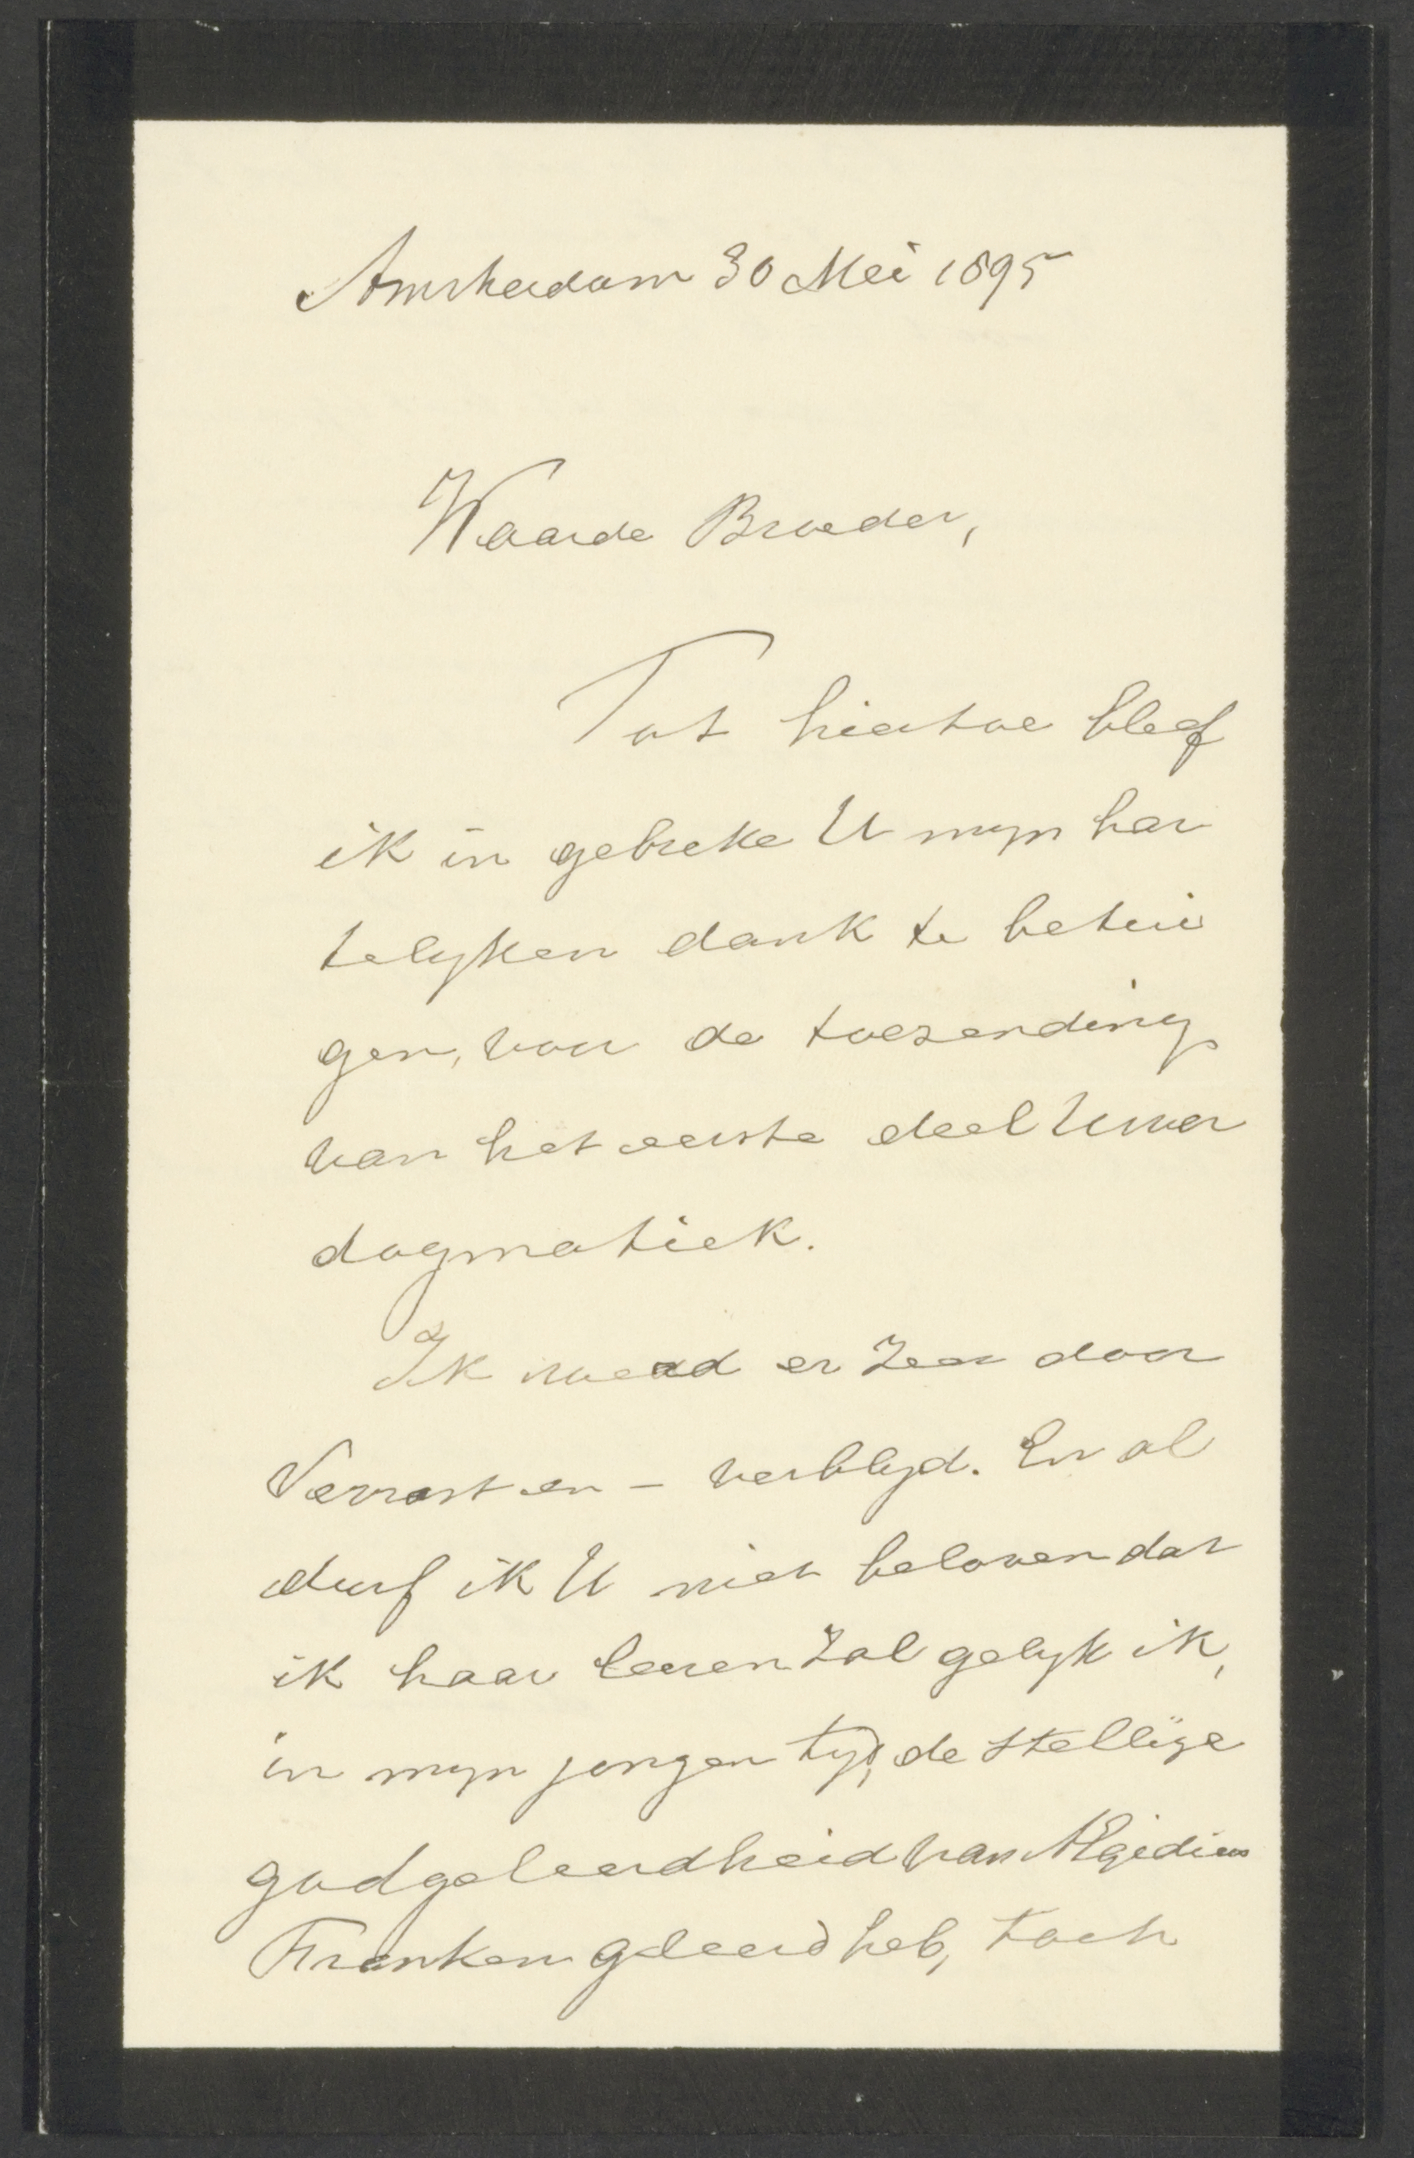 Amsterdam 30 Mei 1895
Waarde Broeder,
Tot hiertoe bleef
ik in gebreke U mijn har
telyken dank te betui
gen, voor de toezending
van het eerste deel Uwer
dogmatiek.
Ik werd er zeer door
Verrast en - verblyd. En al
durf ik U niet beloven dat
ik haar leeren zal gelyk ik,
in myn jongen tyd, de stellige
godgeleerdheid van Aegidius
Franken geleerd heb, toch